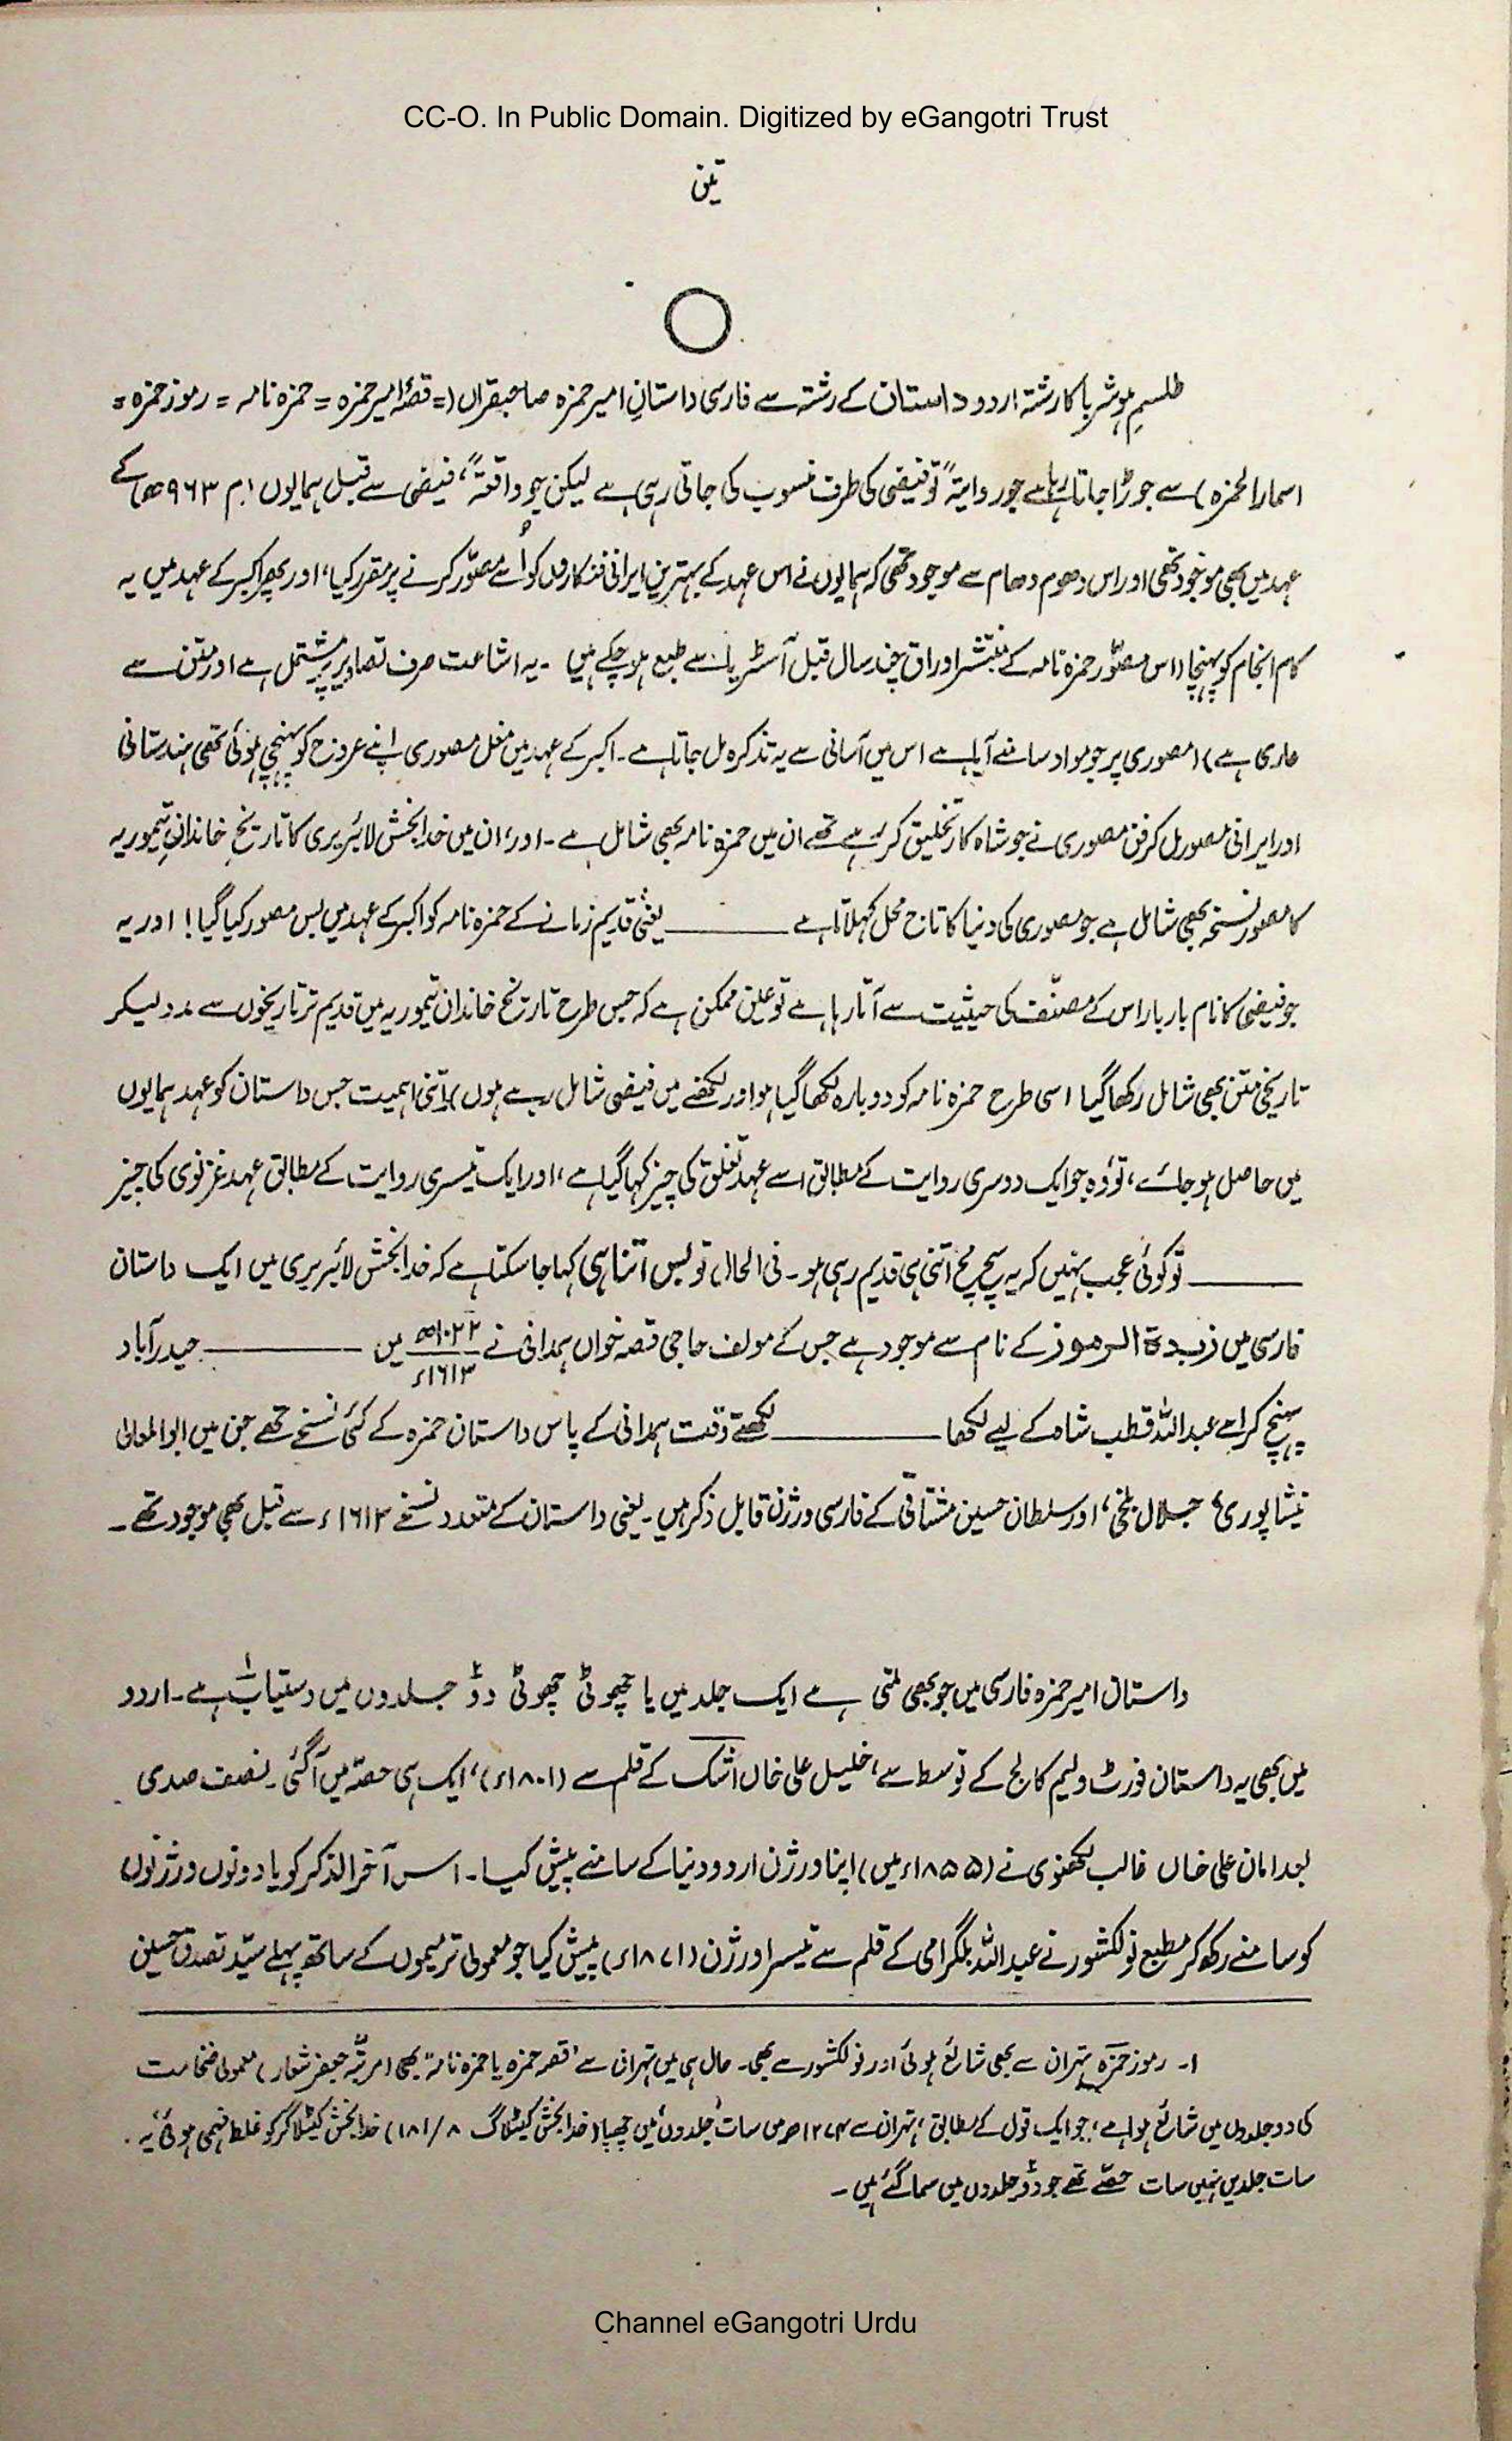 CC-O. In Public Domain. Digitized by eGangotri Trust
تین
طلسمِ ہوشربا کا رشتہ اردو داستان کے رشتہ سے فارسی داستانِ امیر حمزہ صاحبقراں (= قصۂ امیر حمزہ = حمزہ نامہ = رموز حمزہ =
اسمار الحمزہ) سے جوڑا جاتا رہا ہے جو روایتہً تو فیضی کی طرف منسوب کی جاتی رہی ہے لیکن جو واقعتہً، فیضی سے قبل ہمایوں (م ۹۶۳ھ) کے
عہد میں بھی موجود تھی اور اس دھوم دھام سے موجود تھی کہ ہمایوں نے اس عہد کے بہترین ایرانی فنکاروں کو اُسے مصوّر کرنے پر مقرر کیا، اور پھر اکبر کے عہد میں یہ
کام انجام کو پہنچا (اس مصوّر حمزہ نامہ کے منتشر اوراق چند سال قبل آسٹریا سے طبع ہو چکے ہیں ۔ یہ اشاعت صرف تصاویر پر مشتمل ہے اور متن سے
عاری ہے) (مصوری پر جو مواد سامنے آیا ہے اس میں آسانی سے یہ تذکرہ مل جاتا ہے ۔ اکبر کے عہد میں مغل مصوری اپنے عروج کو پہنچی ہوئی تھی ہندستانی
اور ایرانی مصور مل کر فن مصوری نے جو شاہکار تخلیق کر رہے تھے ان میں حمزہ نامہ بھی شامل ہے ۔ اور، ان میں خدا بخش لائبریری کا تاریخِ خاندانِ تیموریہ
کا مصور نسخہ بھی شامل ہے جو مصوری کی دنیا کا تاج محل کہلاتا ہے ——— یعنی قدیم زمانے کے حمزہ نامہ کو اکبر کے عہد میں بس مصور کیا گیا! اور یہ
جو فیضی کا نام بار بار اس کے مصنّف کی حیثیت سے آتا رہا ہے تو عین ممکن ہے کہ جس طرح تاریخ خاندان تیموریہ میں قدیم تر تاریخوں سے مدد لیکر
تاریخی متن بھی شامل رکھا گیا اسی طرح حمزہ نامہ کو دوبارہ لکھا گیا ہو اور لکھنے میں فیضی شامل رہے ہوں) اتنی اہمیت جس داستان کو عہد ہمایوں
میں حاصل ہو جائے، تو وہ جو ایک دوسری روایت کے مطابق اسے عہد تغلق کی چیز کہا گیا ہے، اور ایک تیسری روایت کے مطابق عہد غزنوی کی چیز
——— تو کوئی عجب نہیں کہ یہ سچ مچ اتنی ہی قدیم رہی ہو ۔ فی الحال تو بس اتنا ہی کہا جا سکتا ہے کہ خدا بخش لائبریری میں ایک داستان
فارسی میں زبدۃ الرموز کے نام سے موجود ہے جس کے مولف حاجی قصہ خواں ہمدانی نے ۱۰۲۲ھ/۱۶۱۳ء میں ——— حیدرآباد
پہنچ کر اسے عبداللہ قطب شاہ کے لیے لکھا ——— لکھتے وقت ہمدانی کے پاس داستان حمزہ کے کئی نسخے تھے جن میں ابوالمعالی
نیشاپوری، جلال بلخی، اور سلطان حسین مشتاقی کے فارسی ورژن قابل ذکر ہیں ۔ یعنی داستان کے متعدد نسخے ۱۶۱۳ء سے قبل بھی موجود تھے ۔
داستان امیر حمزہ فارسی میں جو بھی ملتی ہے ایک جلد میں یا چھوٹی چھوٹی دو جلدوں میں دستیاب ہے۱ ۔ اردو
میں بھی یہ داستان فورٹ ولیم کالج کے توسط سے، خلیل علی خاں اشک کے قلم سے (۱۸۰۱ء)، ایک ہی حصّہ میں آگئی ۔ نصف صدی
بعد امان علی خاں غالب لکھنوی نے (۱۸۵۵ء میں) اپنا ورژن اردو دنیا کے سامنے پیش کیا ۔ اس آخر الذکر کو یا دونوں ورژنوں
کو سامنے رکھ کر مطبع نولکشور نے عبداللہ بلگرامی کے قلم سے تیسرا ورژن (۱۸۷۱ء) پیش کیا جو معمولی ترمیموں کے ساتھ پہلے سیّد تصدق حسین
۱۔ رموز حمزہ تہران سے بھی شائع ہوئی اور نولکشور سے بھی ۔ حال ہی میں تہران سے "قصہ حمزہ یا حمزہ نامہ" بھی (مرتبہ جعفر شعار) معمولی ضخامت
کی دو جلدوں میں شائع ہوا ہے، جو ایک قول کے مطابق، تہران سے ۱۲۷۴ھ میں سات جلدوں میں چھپا (خدا بخش کیٹلاگ ۸/۱۸۱) خدا بخش کیٹلاگر کو غلط فہمی ہوئی، یہ
سات جلدیں نہیں سات حصّے تھے جو دو جلدوں میں سما گئے ہیں ۔
Channel eGangotri Urdu